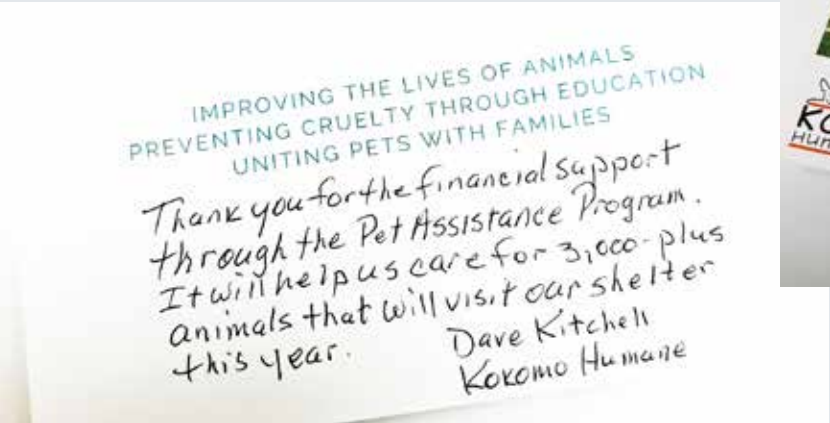 IMPROVING THE LIVES OF ANIMALS
PREVENTING CRUELTY THROUGH EDUCATION
UNITING PETS WITH FAMILIES
Thank you for the financial support
through the Pet Assistance Program.
It will help us care for 3,000-plus
animals that will visit our shelter
this year.
Dave Kitchell
Kokomo Humane
KO
HUM